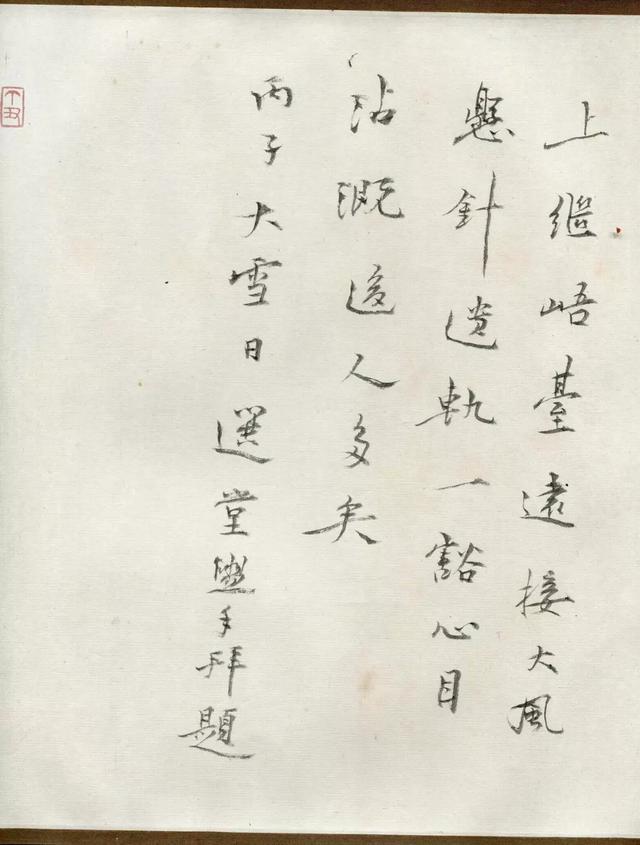 上繼峿臺遠接大風
懸針遺軌一豁心目
沾溉後人多矣
丙子大雪日選堂盥手拜題